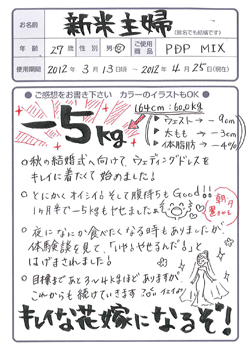 お名前 新米主婦 (匿名でも結構です)
年齢 27歳 性別 男・女 ご使用商品 PDP MIX
使用期間 2012年3月13日頃 ～ 2012年4月25日(現在)
● ご感想をお書き下さい カラーのイラストもOK ●
164cm:60.0kg
−5kg
(▶ウエスト → −9cm)
▶太もも → −3cm
▶体脂肪 → −4%
○秋の結婚式へ向けて、ウェディングドレスを
キレイに着たくて始めました!
○とにかくオイシイ!そして腹持ちもGood!!
1ヶ月半で−5kgもやせました
朝夕
置きかえ
○夜になにか食べたくなる時もありましたが、
体験談を見て、「いや!やせるんだ!」と
はげまされました!
○目標まであと3〜4kgほどありますが
これからも続けていきます
キレイな花嫁になるぞ!